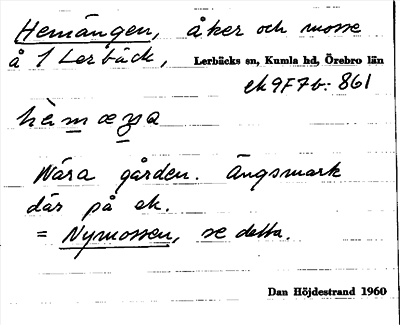 Hemängen, åker och mosse
å 1 Lerbäck, Lerbäcks sn, Kumla hd, Örebro län
ek 9F7b: 861
Nära gården. Ängsmark
där på ek.
= Nymossen, se detta.
Dan Höjdestrand 1960